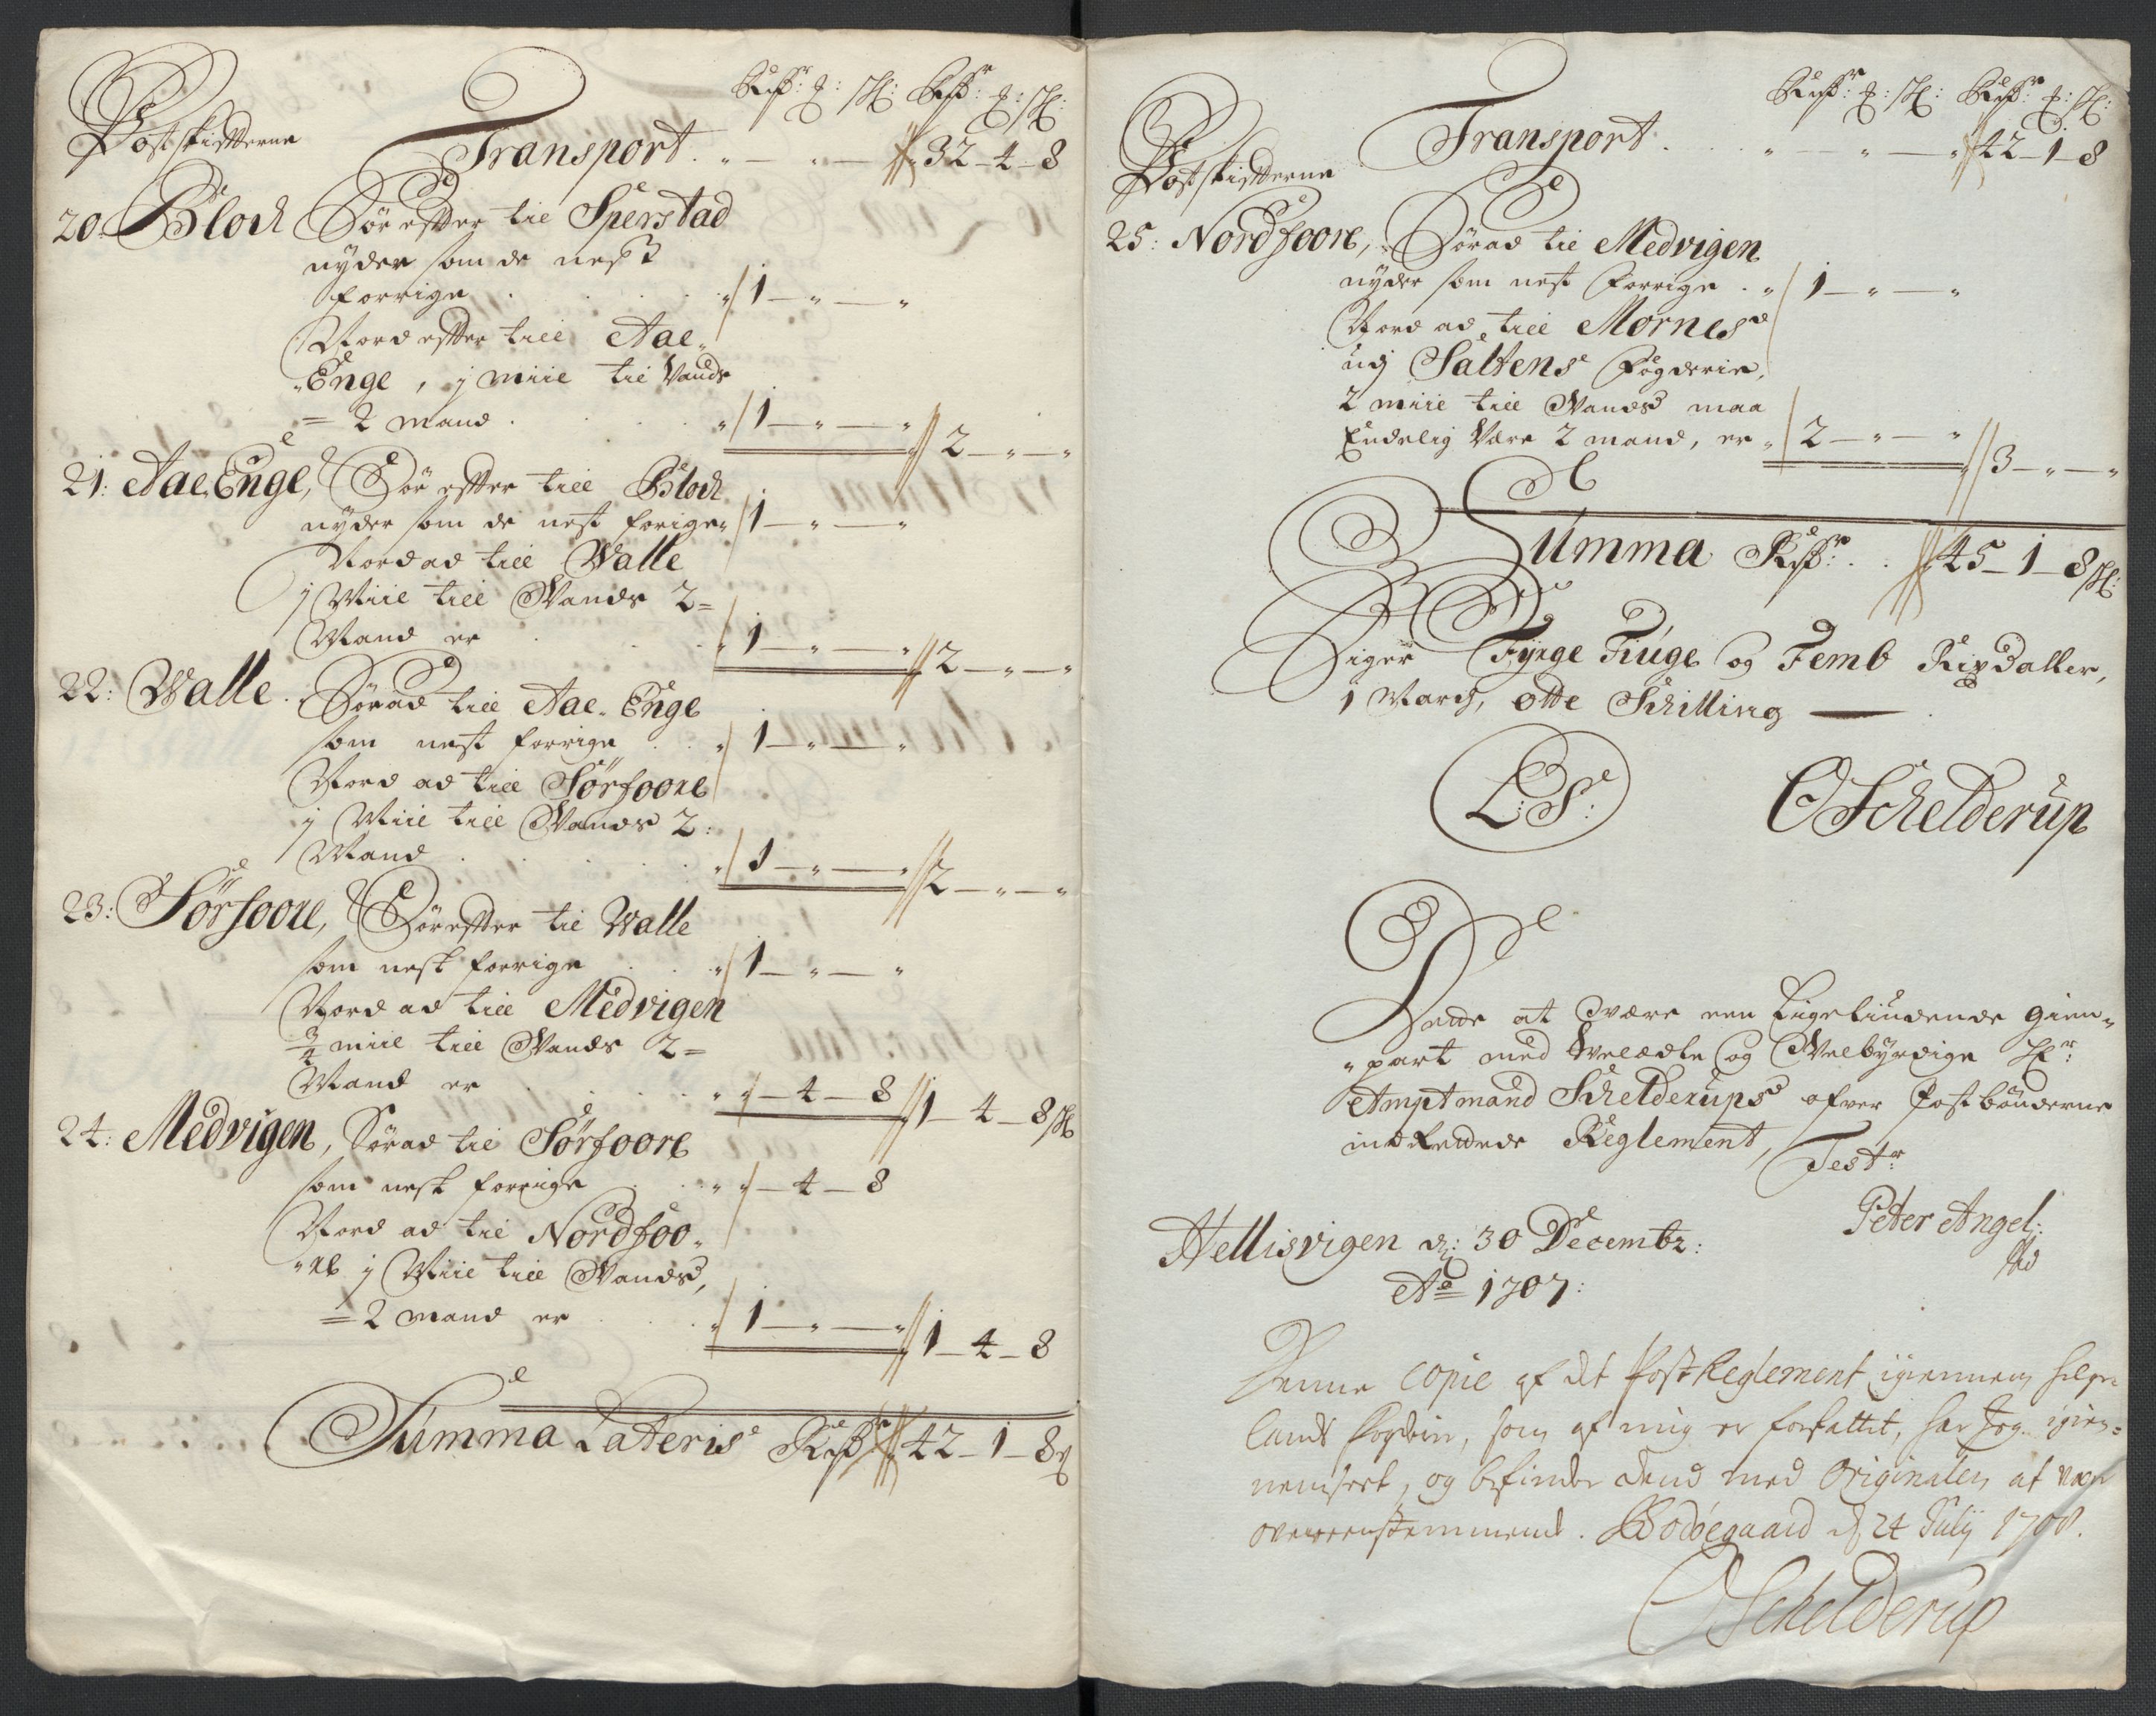 Rixdr: ₰: ß: Rixdr: ₰: ß:
Postskifterne Transport . . „ — „ — 32 – 4 – 8
20: Bloch Sør effter til Sperstad
nyder som de nest
forrige . . . . „ 1 – „ – „
Nord effter till Aae„
„Enge, j Miil til Vands
= 2 mand . . . „ 1 – „ – „ 2 – „ – „
21: Aae Enge, Sør effter till Bloch
nyder som de nest forige „ 1 – „ – „
Nord ad till Walle
j Miil till Vands 2 =
Mand er . . . „ 1 – „ – „ 2 – „ – „
22: Walle . Sørad till Aae. Enge
som nest forrige . . „ 1 – „ – „
Nord ad till Sørfoore
j Miil till Vands 2:
Mand . . . . „ 1 – „ – „ 2 – „ – „
23: Sørfoore, Sør effter til Walle
som nest forrige . . „ 1 – „ – „
Nord ad till Medvigen
3/4 miil till Vands 2 =
Mand er . . . „ „ – 4 – 8 1 – 4 – 8 ß
24: Medvigen, Sørad til Sørfoore
som nest forrige . . „ „ – 4 – 8
Nord ad til Nordfoo„
„re j Miil till Vands,
= 2 mand er . . . „ 1 – „ – „ 1 – 4 – 8
Summa Lateris Rixdr 42 – 1 – 8 ß
Rixdr: ₰: ß: Rixdr: ₰: ß:
Postskifterne Transport . . . „ — „ — „ 42 – 1 – 8
25: Nordfoore, Sørad til Medvigen
nyder som nest forrige . „ 1 – „ – „
Nord ad till Mornes
udj Saltens Fogderie,
2 miil till Vands maa
Endelig Være 2 mand, er „ 2 – „ – „ 3 – „ – „
Summa Rixdr: . . 45 – 1 – 8 ß:
Siger Fyrge Tiuge og Femb Rixdaller,
1 March, otte Schilling —
L: S:
OSchelderup
Dette at være een Liigeliudende gien„
„part med Welædle og Velbyrdige Hr:
Amptmand Schelderups ofver Postbønderne
indrettede Reglement,
Testr
Hellisvigen d: 30 Decembr:
Ao 1707:
Peter Angel:
Denne copie af det Post Reglement igiennem Helge
lands fogderie, som af mig er forfattet, har jeg igien=
nemseet, og befinder dend med Originalen at være
overeenstemmende. Bodøegaard d 24 Julij 1708.
OSchelderup